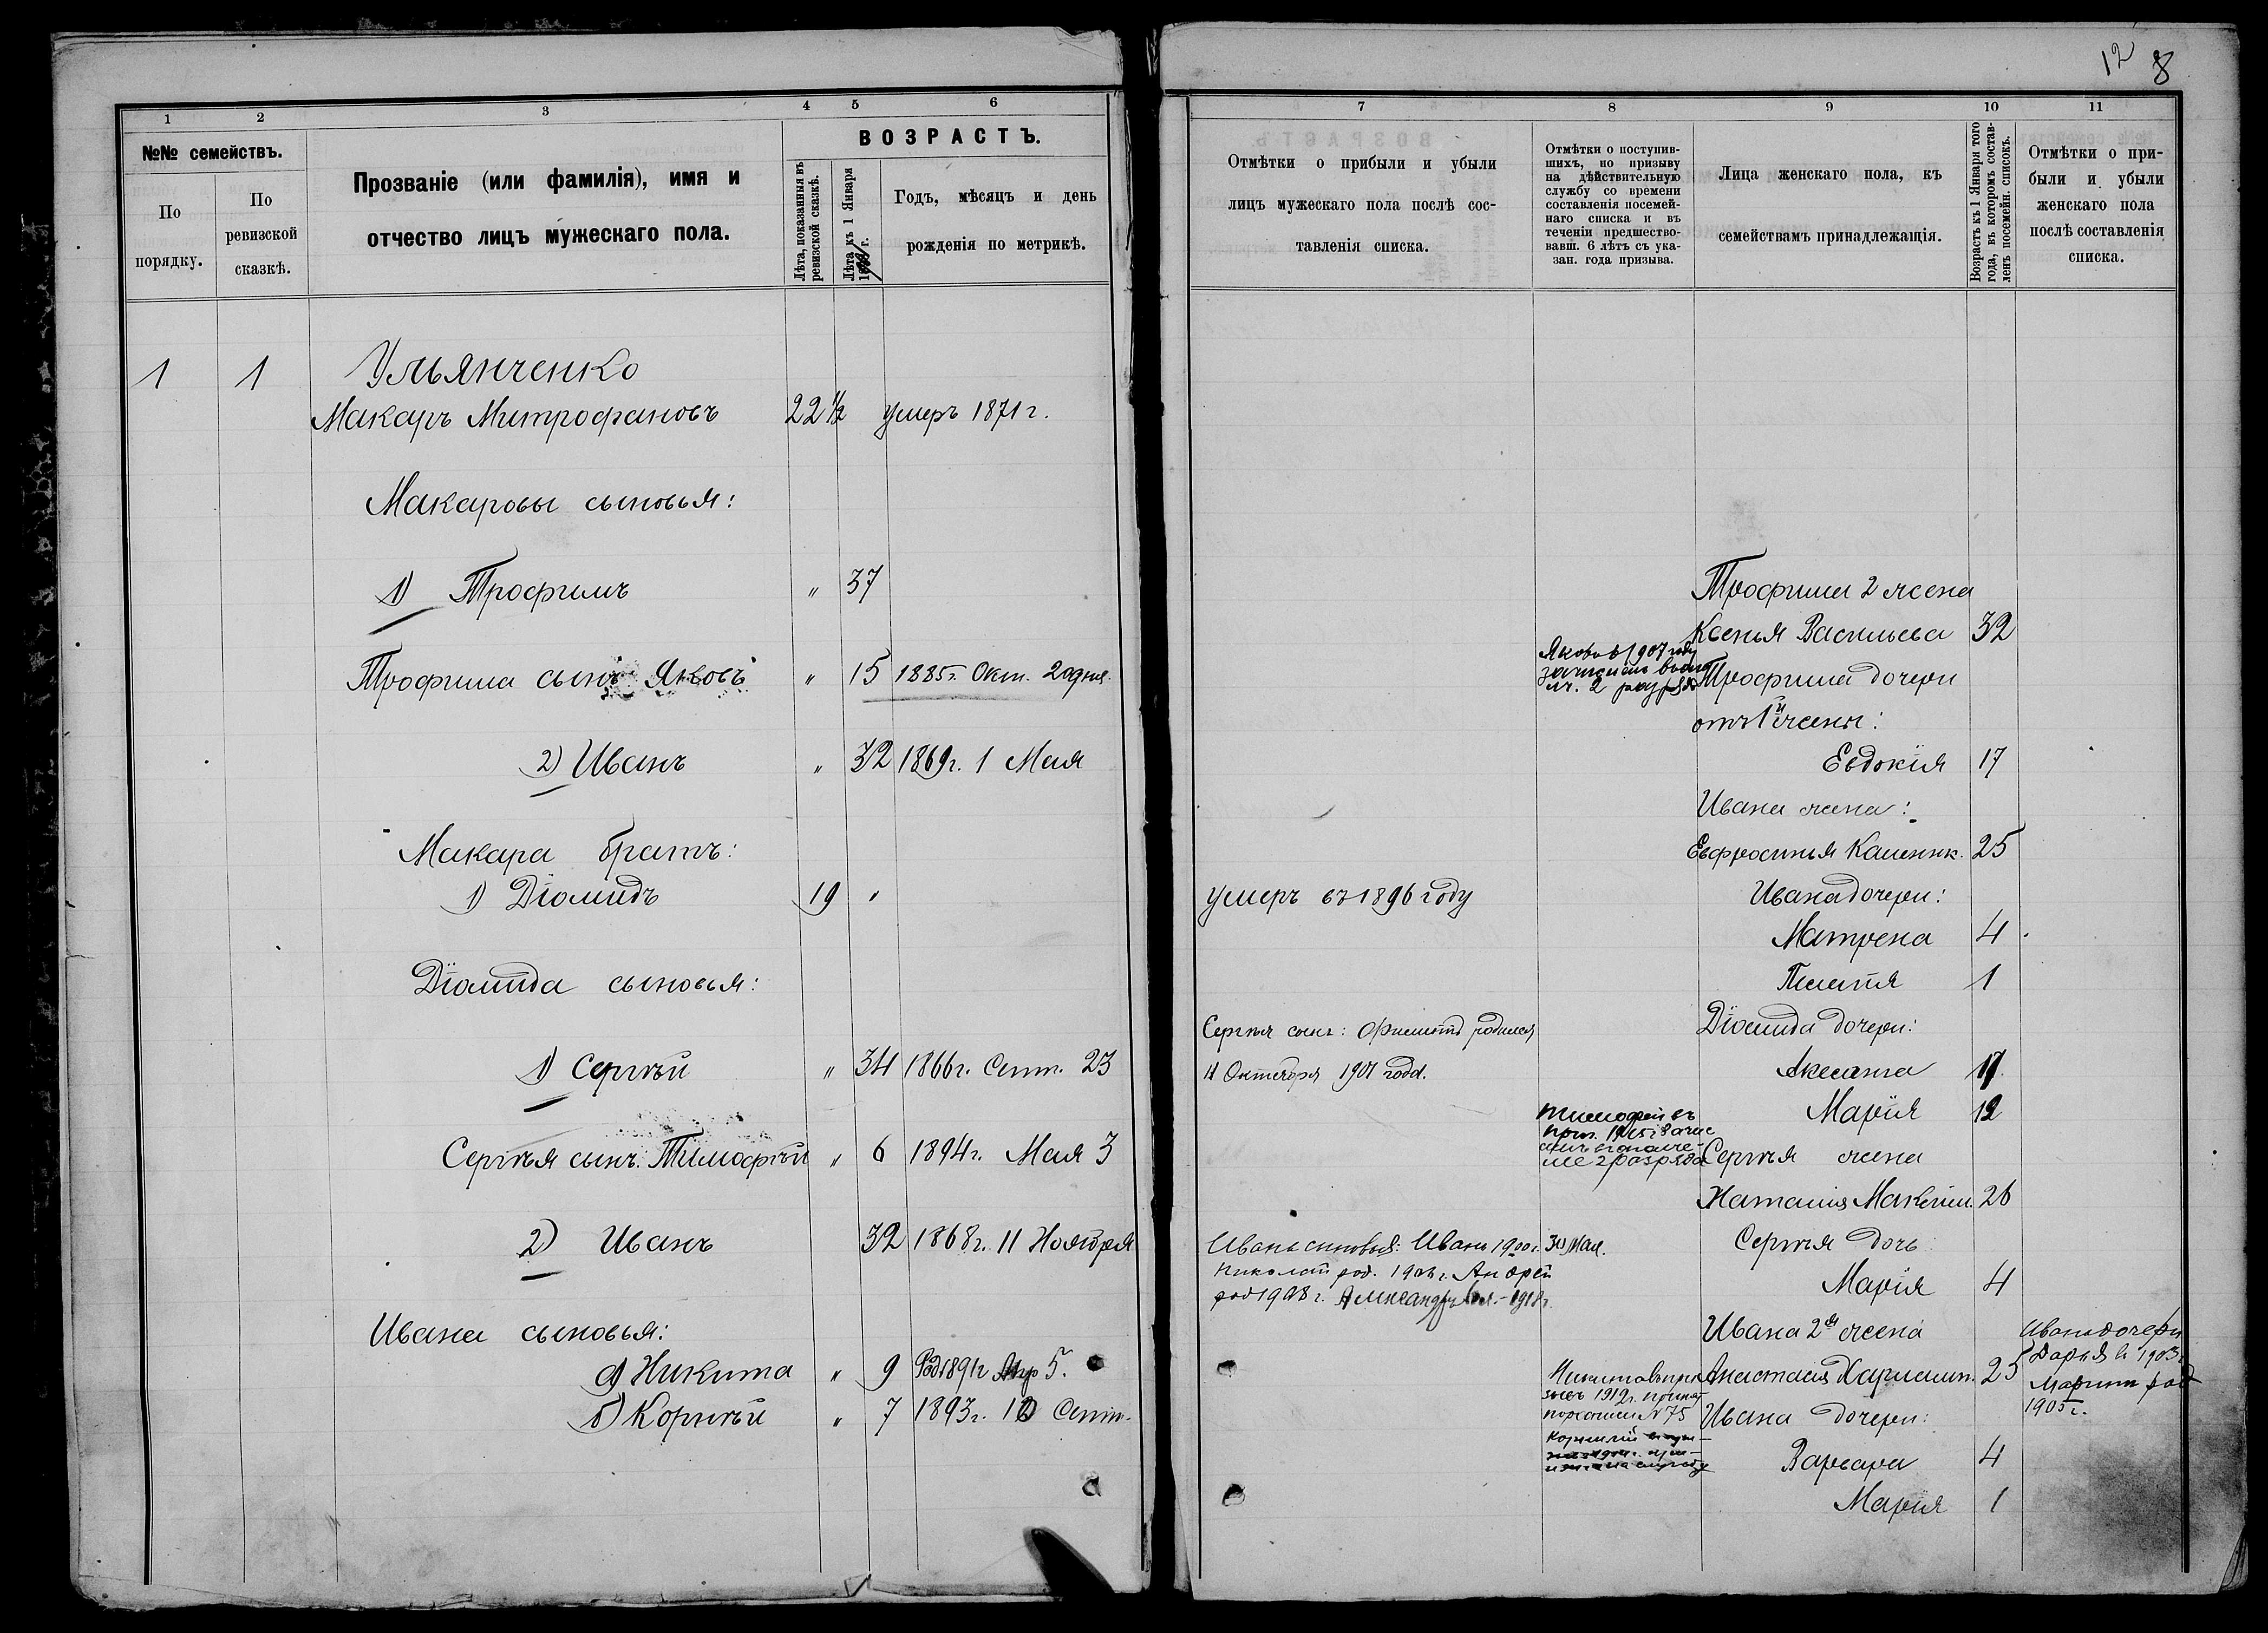 12 8
1 2 3 4 5 6
№№ семействъ.
По порядку.
По ревизской сказкѣ.
Прозваніе (или фамилія), имя и
отчество лицъ мужескаго пола.
ВОЗРАСТЪ.
Лѣта, показанныя въ
ревизской сказкѣ.
Лѣта къ 1 Января
г.
Годъ, мѣсяцъ и день
рожденія по метрикѣ.
1 1 Ульянченко
Макаръ Митрофановъ 22 ½ умеръ 1871 г.
Макаровы сыновья:
1) Трофимъ " 37
Трофима сынъ Яковъ " 15 1885 г. Окт. 20 дня
2) Иванъ " 32 1869 г. 1 Мая
Макара братъ:
1) Діомидъ 19 "
Діомида сыновья:
1) Сергѣй " 34 1866 г. Сент. 23
Сергѣя сынъ: Тимофѣй " 6 1894 г. Мая 3
2) Иванъ 32 1868 г. 11 Ноября
Ивана сыновья:
а) Никита " 9 Род 1891 г 5.
б) Корнѣй " 7 1893 г. Сент.
7 8 9 10 11
Отмѣтки о прибыли и убыли
лицъ мужескаго пола послѣ сос-
тавленія списка.
Отмѣтки о поступив-
шихъ, по призыву
на дѣйствительную
службу со времени
составленія посемей-
наго списка и въ
теченіи предшество-
вавш. 6 лѣтъ съ ука-
зан. года призыва.
Лица женскаго пола, къ
семействамъ принадлежащія.
Возрастъ къ 1 Января того
года, въ которомъ состав-
ленъ посемейн. списокъ.
Отмѣтки о при-
были и убыли
женскаго пола
послѣ составленія
списка.
Трофима 2 жена
Ксенья Васильева 32
Яковъ в 1907 году
зачисленъ
2 разряда
Трофима дочери
отъ 1й жены:
Евдокія 17
Ивана жена:
Евфросинья 25
умеръ въ 1896 году
Ивана дочери:
Матрена 4
1
Діомида дочери:
Сергѣя сынъ: родился
Октября 1901 года.
17
Марія 12
Тимофей въ
2 разряда
Сергѣя жена
Наталія 26
Сергѣя дочь
Марія 4
Ивана сыновья: Иванъ 1900 г. 30 Мая.
Николай род. Андрей
род 1908 г. Александръ
Ивана 2я жена
Анастасія 25
Ивана дочери
Дарья в 1903 г
род
1905 г.
Никита въ
1912 г.
№ 75
Ивана дочери:
Корнилій
Варвара 4
Марія 1